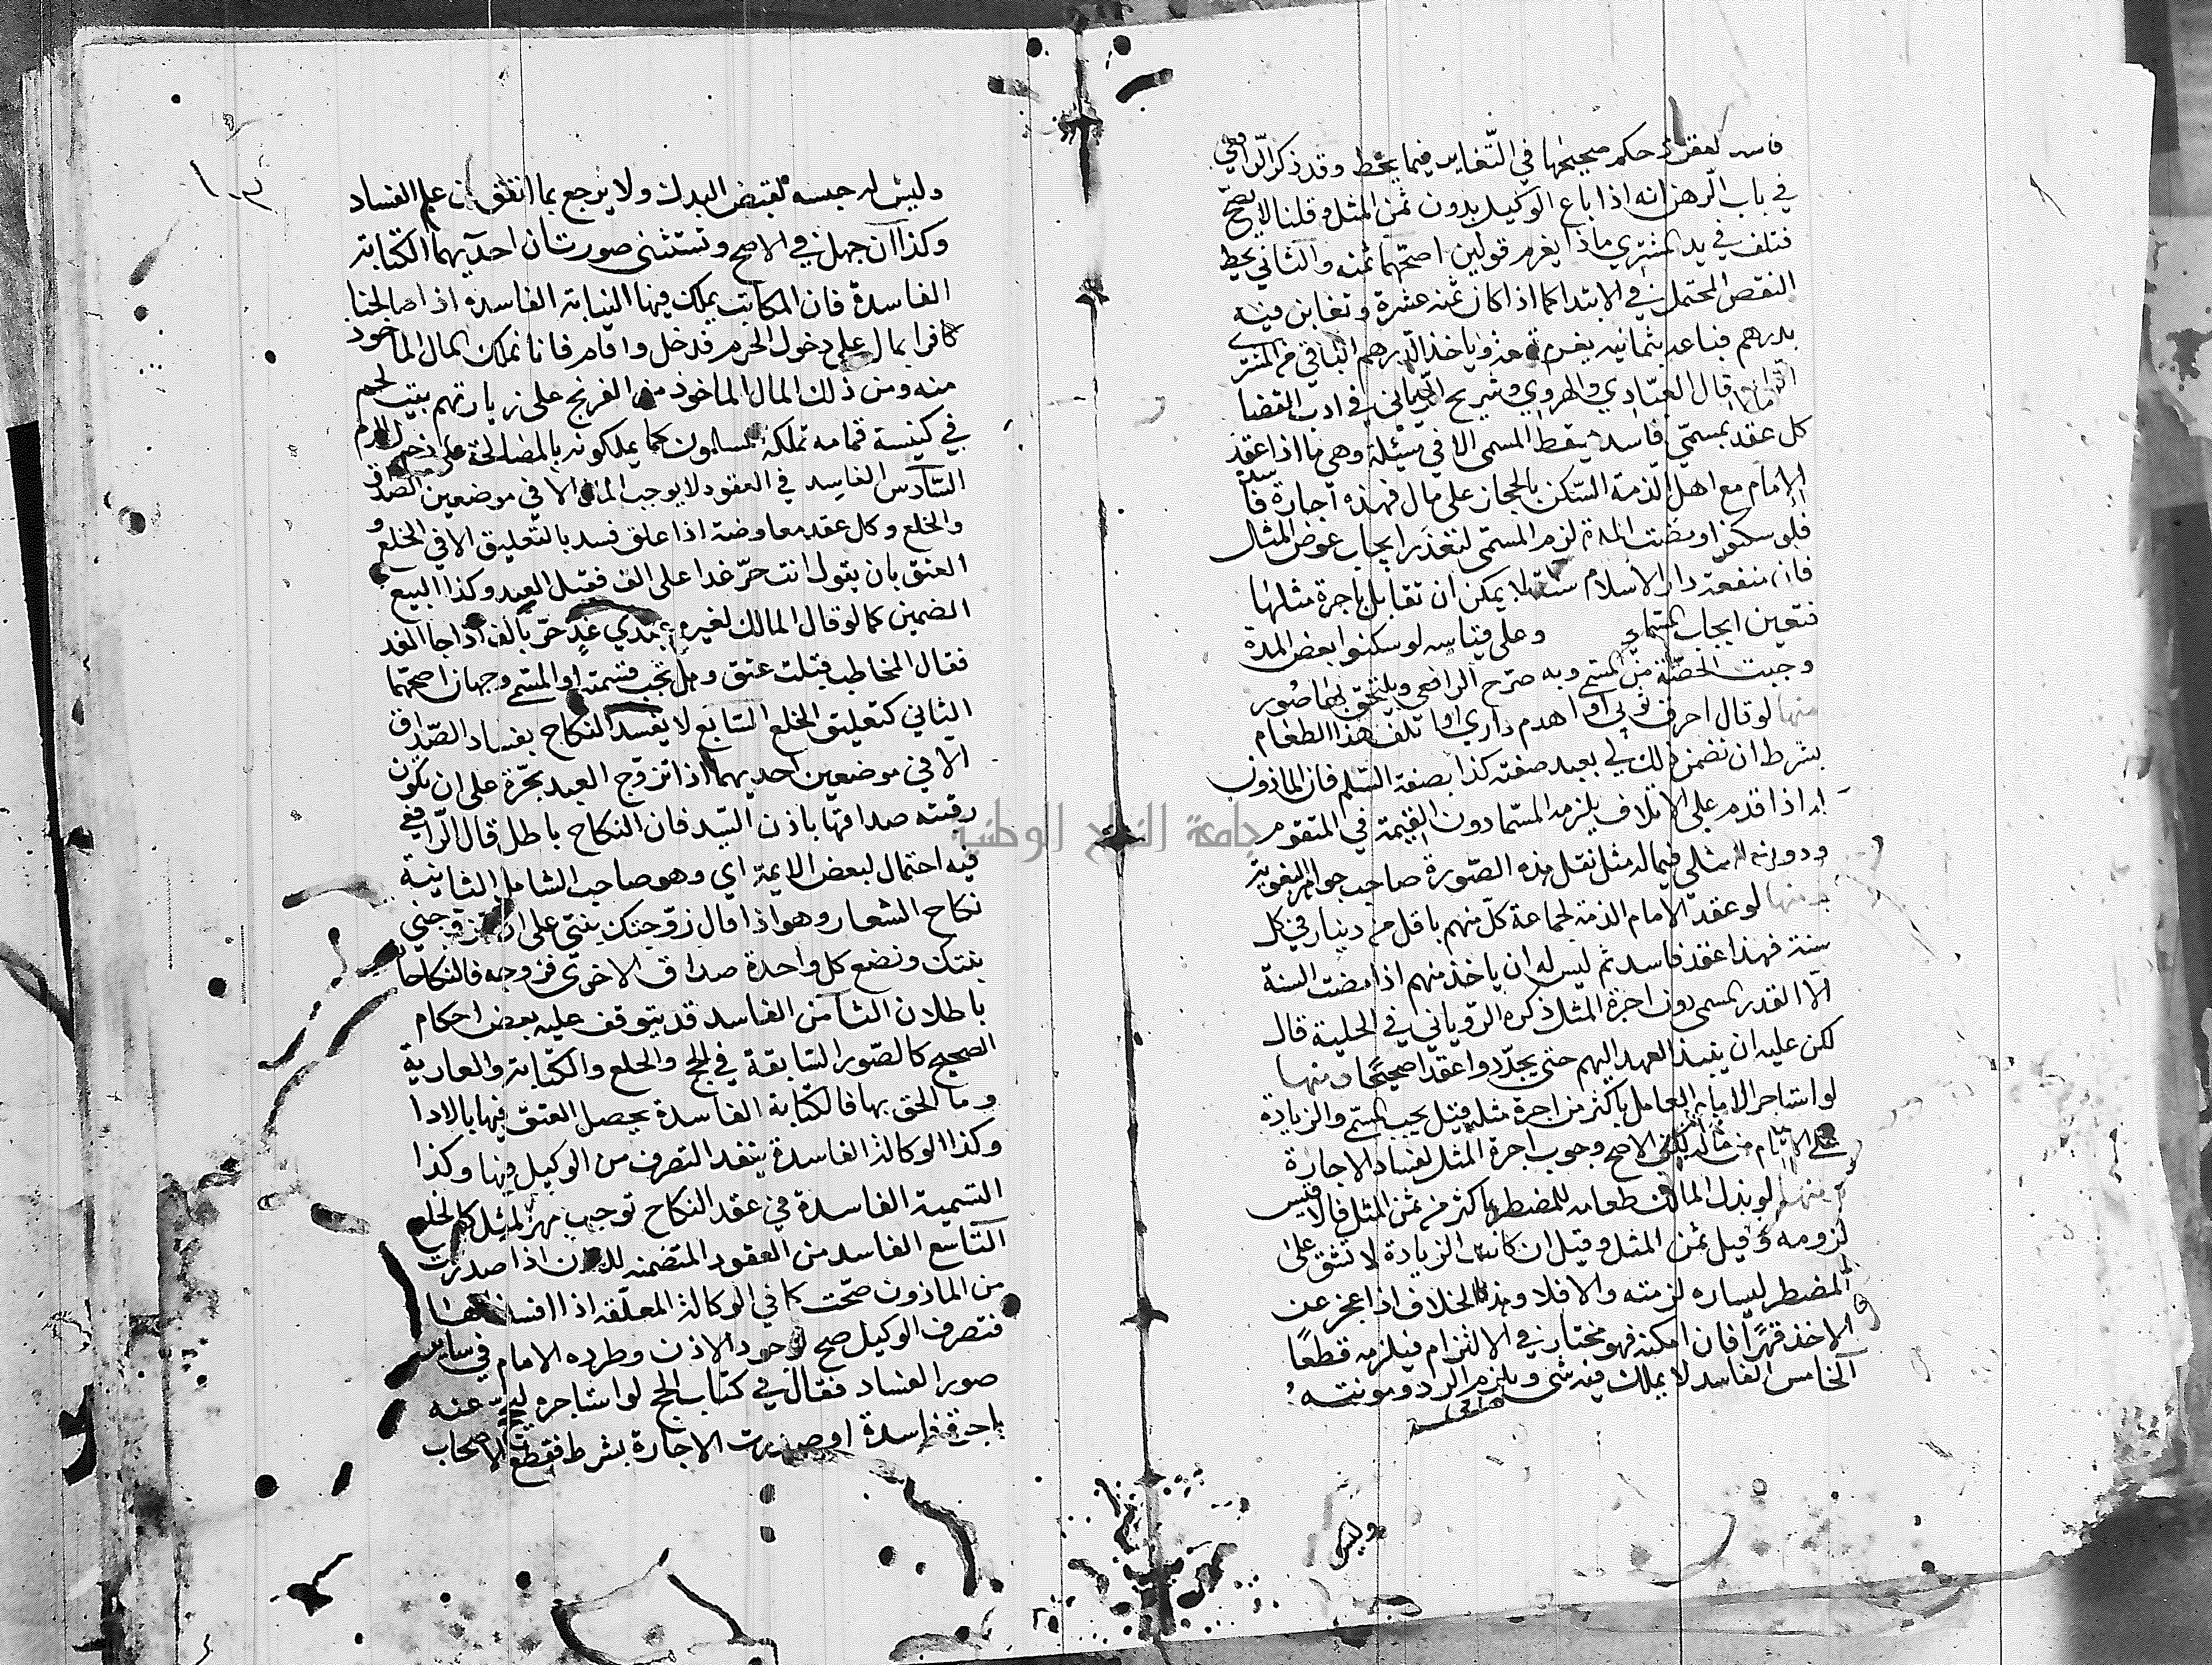 فاسد لعقد حكم صحيحها في التغابن فيما يحط وقد ذكر الرافعي
في باب الرهن انه اذا باع الوكيل بدون ثمن المثل وقلنا لا يصح
فتلف في يد المشتري ماذا يغرم قولين اصحهما ثمنه والثاني يحط
النقص المحتمل في الابتدا كما اذا كان ثمنه عشرة وتغابن فيه
بدرهم فباعه بثمانيه يغرم وياخذ الدرهم الباقي من المشتري
قال العبادي والهروي وشريح الروياني في ادب القضا
كل عقد بمسمى فاسد يسقط المسمى الا في مسئلة وهي ما اذا عقد
الامام مع اهل الذمة السكن بالحجاز على مال فهذه اجارة فاسدة
فلو سكنوا ومضت المدة لزم المسمى لتعذر ايجاب عوض المثل
فان منفعة دار الاسلام سنة لا يمكن ان تقابل باجرة مثلها
فتعين ايجاب المسمى وعلى قياسه لو سكنوا بعض المدة
وجبت الحصة من المسمى وبه صرح الرافعي ويلتحق بها صور
منها لو قال احرق ثوبي او اهدم داري او اتلف هذا الطعام
بشرط ان تضمن ذلك لي بعبد صفته كذا بصفة السلم فان الماذون
له اذا قدم على الاتلاف يلزمه المسما دون القيمة في المتقوم
ودون المثلي فيما له مثل نقل هذه الصورة صاحب جواهر
ومنها لو عقد الامام الذمة لجماعة كل منهم باقل من دينار في كل
سنة فهذا عقد فاسد ثم ليس له ان ياخذ منهم اذا مضت السنة
الا القدر المسمى دون اجرة المثل ذكره الروياني في الحلية قال
لكن عليه ان ينبذ العهد اليهم حتى يجددوا عقدا صحيحا ومنها
لو استاجر الامام العامل باكثر من اجرة مثله قيل يجب المسمى والزيادة
على الامام من ماله لكن الاصح وجوب اجرة المثل لفساد الاجارة
ومنها لو بذل المالك طعامه للمضطر باكثر من ثمن المثل فالاقيس
لزومه وقيل ثمن المثل وقيل ان كانت الزيادة لا تشق على
المضطر ليساره لزمته والا فلا وهذا الخلاف اذا عجز عن
الاخذ قهرًا فان امكنه فهو مختار في الالتزام فيلزمه قطعًا
الخامس الفاسد لا يملك فيه شي ويلزم الرد ومونته
وليس
وليس له حبسه لقبض البدل ولا يرجع بما انفق ان علم الفساد
وكذا ان جهل في الاصح وتستثنى صورتان احديهما الكتابة
الفاسدة فان المكاتب يملك فيها الثانية الفاسده اذا صالحنا
كافرا بمال على دخول الحرم فدخل واقام فانا نملك المال الماخود
منه ومن ذلك المال الماخوذ من الفرنج على زيارتهم ببيت لحم
في كنيسة قمامه تملكه المسلمون كما يملكونه بالمصالحة على دخول الحرم
السادس الفاسد في العقود لا يوجب المال الا في موضعين الصداق
والخلع وكل عقد معاوضة اذا علق فسد بالتعليق الا في الخلع و
العتق بان يقول انت حر غدا على الف فقبل العبد وكذا البيع
الضمني كما لو قال المالك لغيره عبدي عنك حر بالف اذا جا الغد
فقال المخاطب قبلت عتق وهل يجب قيمته او المسمى وجهان اصحهما
الثاني كتعليق الخلع السابع لا يفسد النكاح بفساد الصداق
الا في موضعين احديهما اذا تزوج العبد بحرة على ان تكون
رقبته صداقها باذن السيد فان النكاح باطل قال الرافعي
فيه احتمال لبعض الايمة اي وهو صاحب الشامل الثانية
نكاح الشغار وهو اذا قال زوجتك بنتي على ان تزوجني
بنتك وبضع كل واحدة صداق الاخرى فزوجه فالنكاحان
باطلان الثامن الفاسد قد يتوقف عليه بعض احكام
الصحيح كالصور السابقة في الحج والخلع والكتابة والعارية
وما الحق بها فالكتابة الفاسدة يحصل العتق فيها بالادا
وكذا الوكالة الفاسدة ينفذ التصرف من الوكيل فيها وكذا
التسمية الفاسدة في عقد النكاح توجب مهر المثل كالخلع
التاسع الفاسد من العقود المتضمنه للاذن اذا صدرت
من الماذون صحت كما في الوكالة المعلقه اذا افسدناها
فتصرف الوكيل صح لوجود الاذن وطرده الامام في ساير
صور الفساد فقال في كتاب الحج لو استاجره ليحج عنه
باجرة فاسدة او صدرت الاجارة بشرط فقطع الاصحاب
جامعة النجاح الوطنية